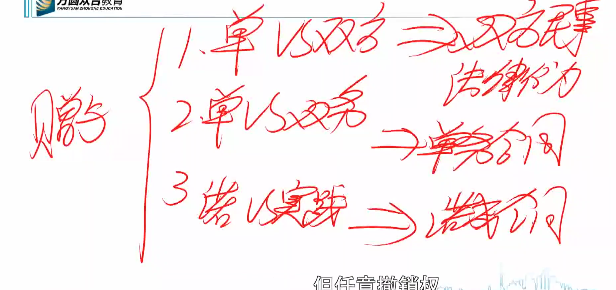 方圆众合教育
FANGYUAN ZHONGHE EDUCATION
赠与
1.单VS双方⇒双方民事
法律行为
2单VS双务⇒单务合同
3诺VS实践⇒诺成合同
但任意撤销权